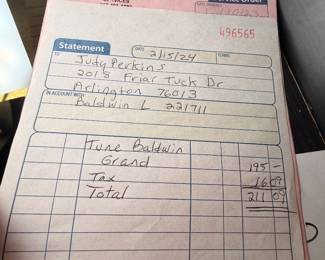 496565
Statement
DATE 2/15/24
TO
Judy Perkins
2013 Friar Tuck Dr
Arlington 76013
IN ACCOUNT WITH
Baldwin L 221711
Tune Baldwin
Grand 195 -
Tax 16 09
Total 211 09